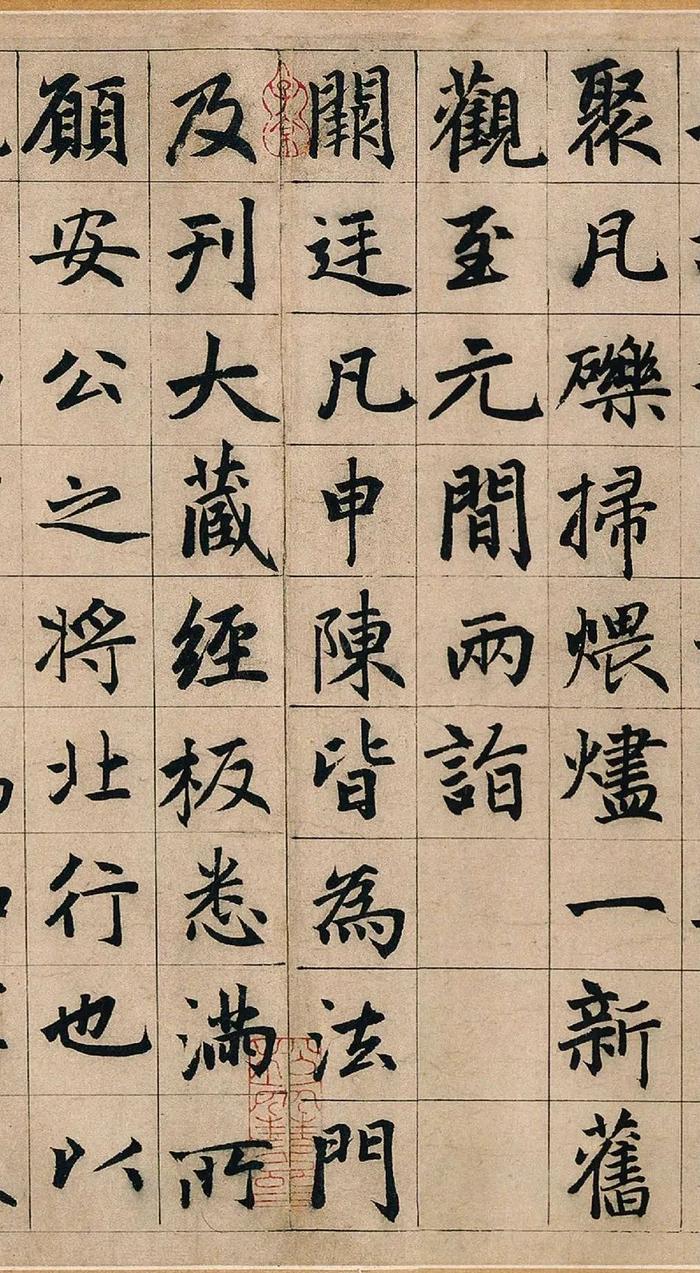 聚凡礫掃煨燼一新舊
觀至元間兩詣
闕廷凡申陳皆為法門
及刊大藏經板悉滿所
願安公之將北行也以